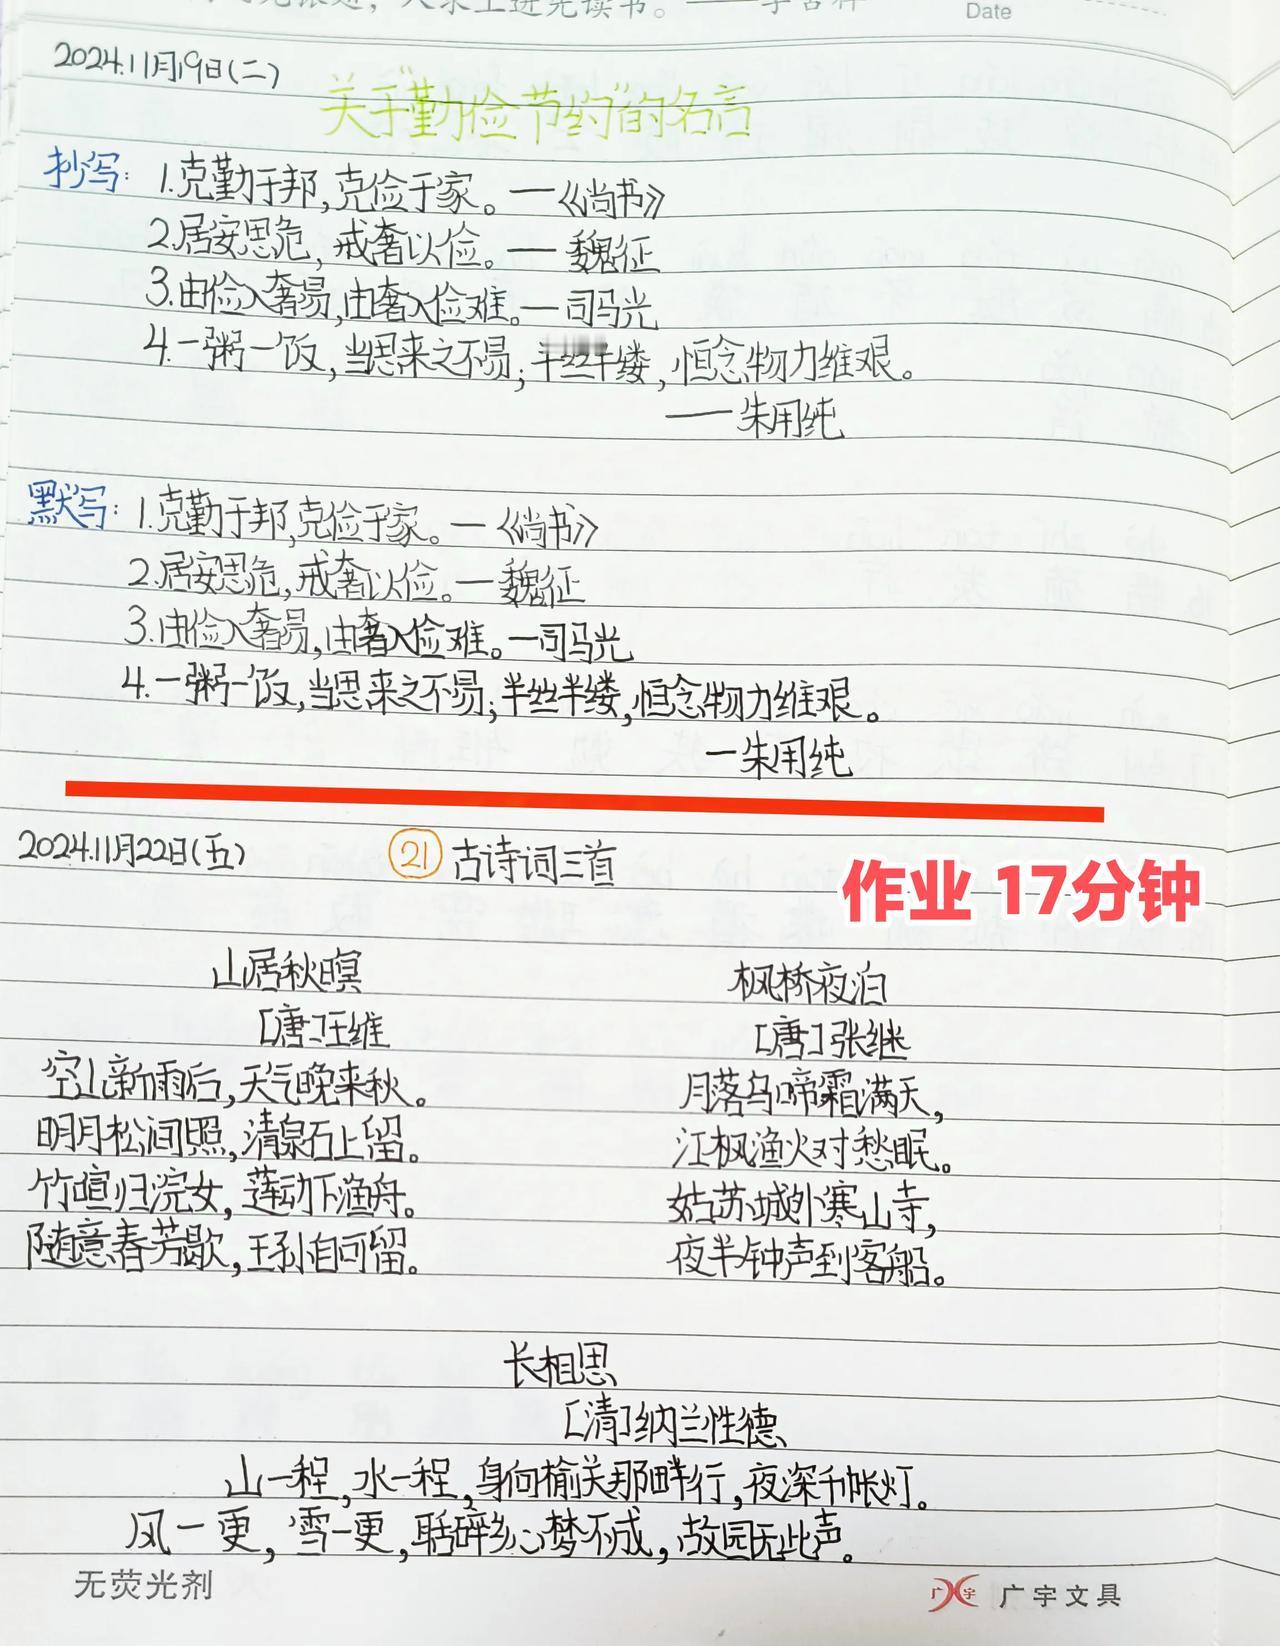 人求上进先读书。——李苦禅
Date
2024.11月19日(二)
关于"勤俭节约"的名言
抄写：1.克勤于邦,克俭于家。—《尚书》
2.居安思危,戒奢以俭。— 魏征
3.由俭入奢易,由奢入俭难。—司马光
4.一粥一饭,当思来之不易;半丝半缕,恒念物力维艰。
——朱用纯
默写：1.克勤于邦,克俭于家。—《尚书》
2.居安思危,戒奢以俭。—魏征
3.由俭入奢易,由奢入俭难。—司马光
4.一粥一饭,当思来之不易;半丝半缕,恒念物力维艰。
—朱用纯
2024.11月22日(五)
21 古诗词三首
作业 17分钟
山居秋暝
[唐]王维
空山新雨后,天气晚来秋。
明月松间照,清泉石上留。
竹喧归浣女,莲动下渔舟。
随意春芳歇,王孙自可留。
枫桥夜泊
[唐]张继
月落乌啼霜满天,
江枫渔火对愁眠。
姑苏城外寒山寺,
夜半钟声到客船。
长相思
[清]纳兰性德
山一程,水一程,身向榆关那畔行,夜深千帐灯。
风一更,雪一更,聒碎乡心梦不成,故园无此声。
无荧光剂
广宇
广宇文具